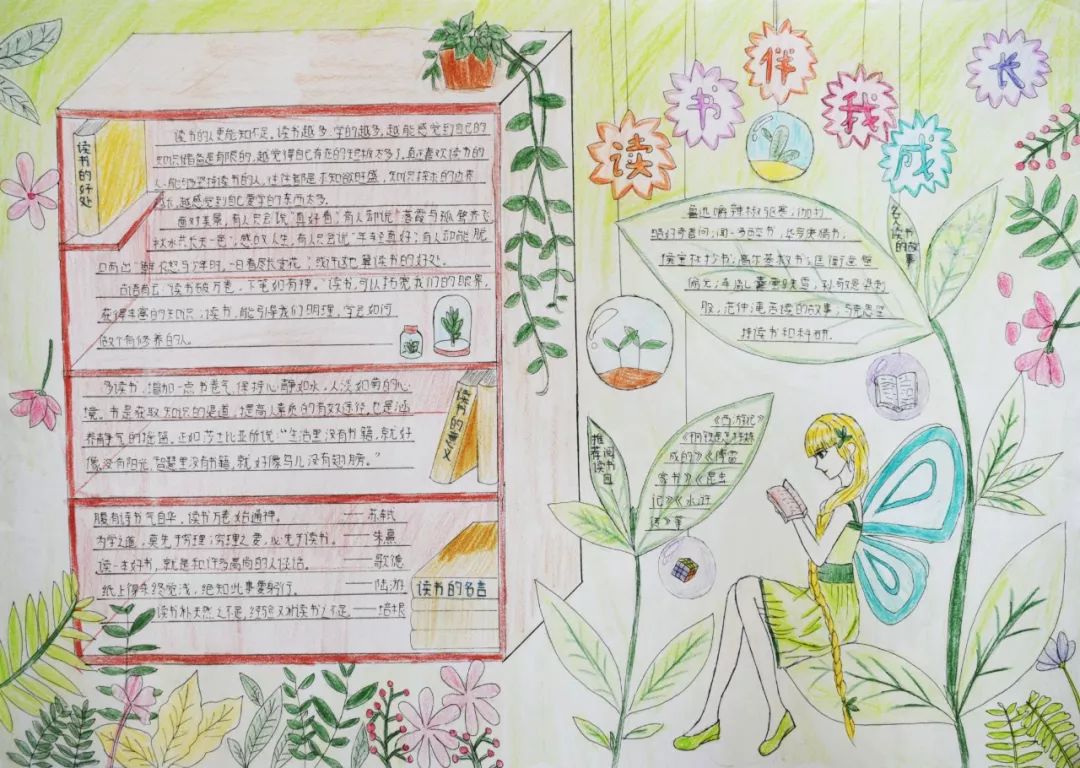 读书伴我成长
读书的好处
读书的人更能知不足。读书越多，学的越多，越能感觉到自己的
知识储备是有限的，越觉得自己存在的短板太多了。真正喜欢读书的
人，能够坚持读书的人，往往都是求知欲旺盛，知识探求的边界
越长，越感觉到自己要学的东西太多。
面对美景，有人只会说“真好看”；有人却说“落霞与孤鹜齐飞，
秋水共长天一色”；感叹人生，有人只会说“年轻真好”；有人却能脱
口而出“鲜衣怒马少年时，一日看尽长安花”；或许这也算读书的好处。
古语有云：“读书破万卷，下笔如有神。”读书，可以拓宽我们的眼界，
获得丰富的知识；读书，能引导我们明理，学会如何
做个有修养的人。
读书的意义
多读书，增加一点书卷气，保持心静如水，人淡如菊的心
境。书是获取知识的渠道，提高人素质的有效途径，也是涵
养静气的摇篮。正如莎士比亚所说：“生活里没有书籍，就好
像没有阳光，智慧里没有书籍，就好像鸟儿没有翅膀。”
读书的名言
腹有诗书气自华，读书万卷始通神。——苏轼
为学之道，莫先于穷理；穷理之要，必先于读书。——朱熹
读一本好书，就是和许多高尚的人谈话。——歌德
纸上得来终觉浅，绝知此事要躬行。——陆游
读书补天然之不足，经验又补读书之不足。——培根
名人读书的故事
鲁迅嚼辣椒驱寒；
闻一多醉书，华罗庚猜书；
侯宝林抄书；高尔基救书；匡衡凿壁
偷光；车胤囊萤映雪，孙敬悬梁刺
股，范仲淹苦读的故事；马克思坚
持读书和科研。
推荐阅读书目
《西游记》
《钢铁是怎样炼
成的》《傅雷
家书》《昆虫
记》《水浒
传》等